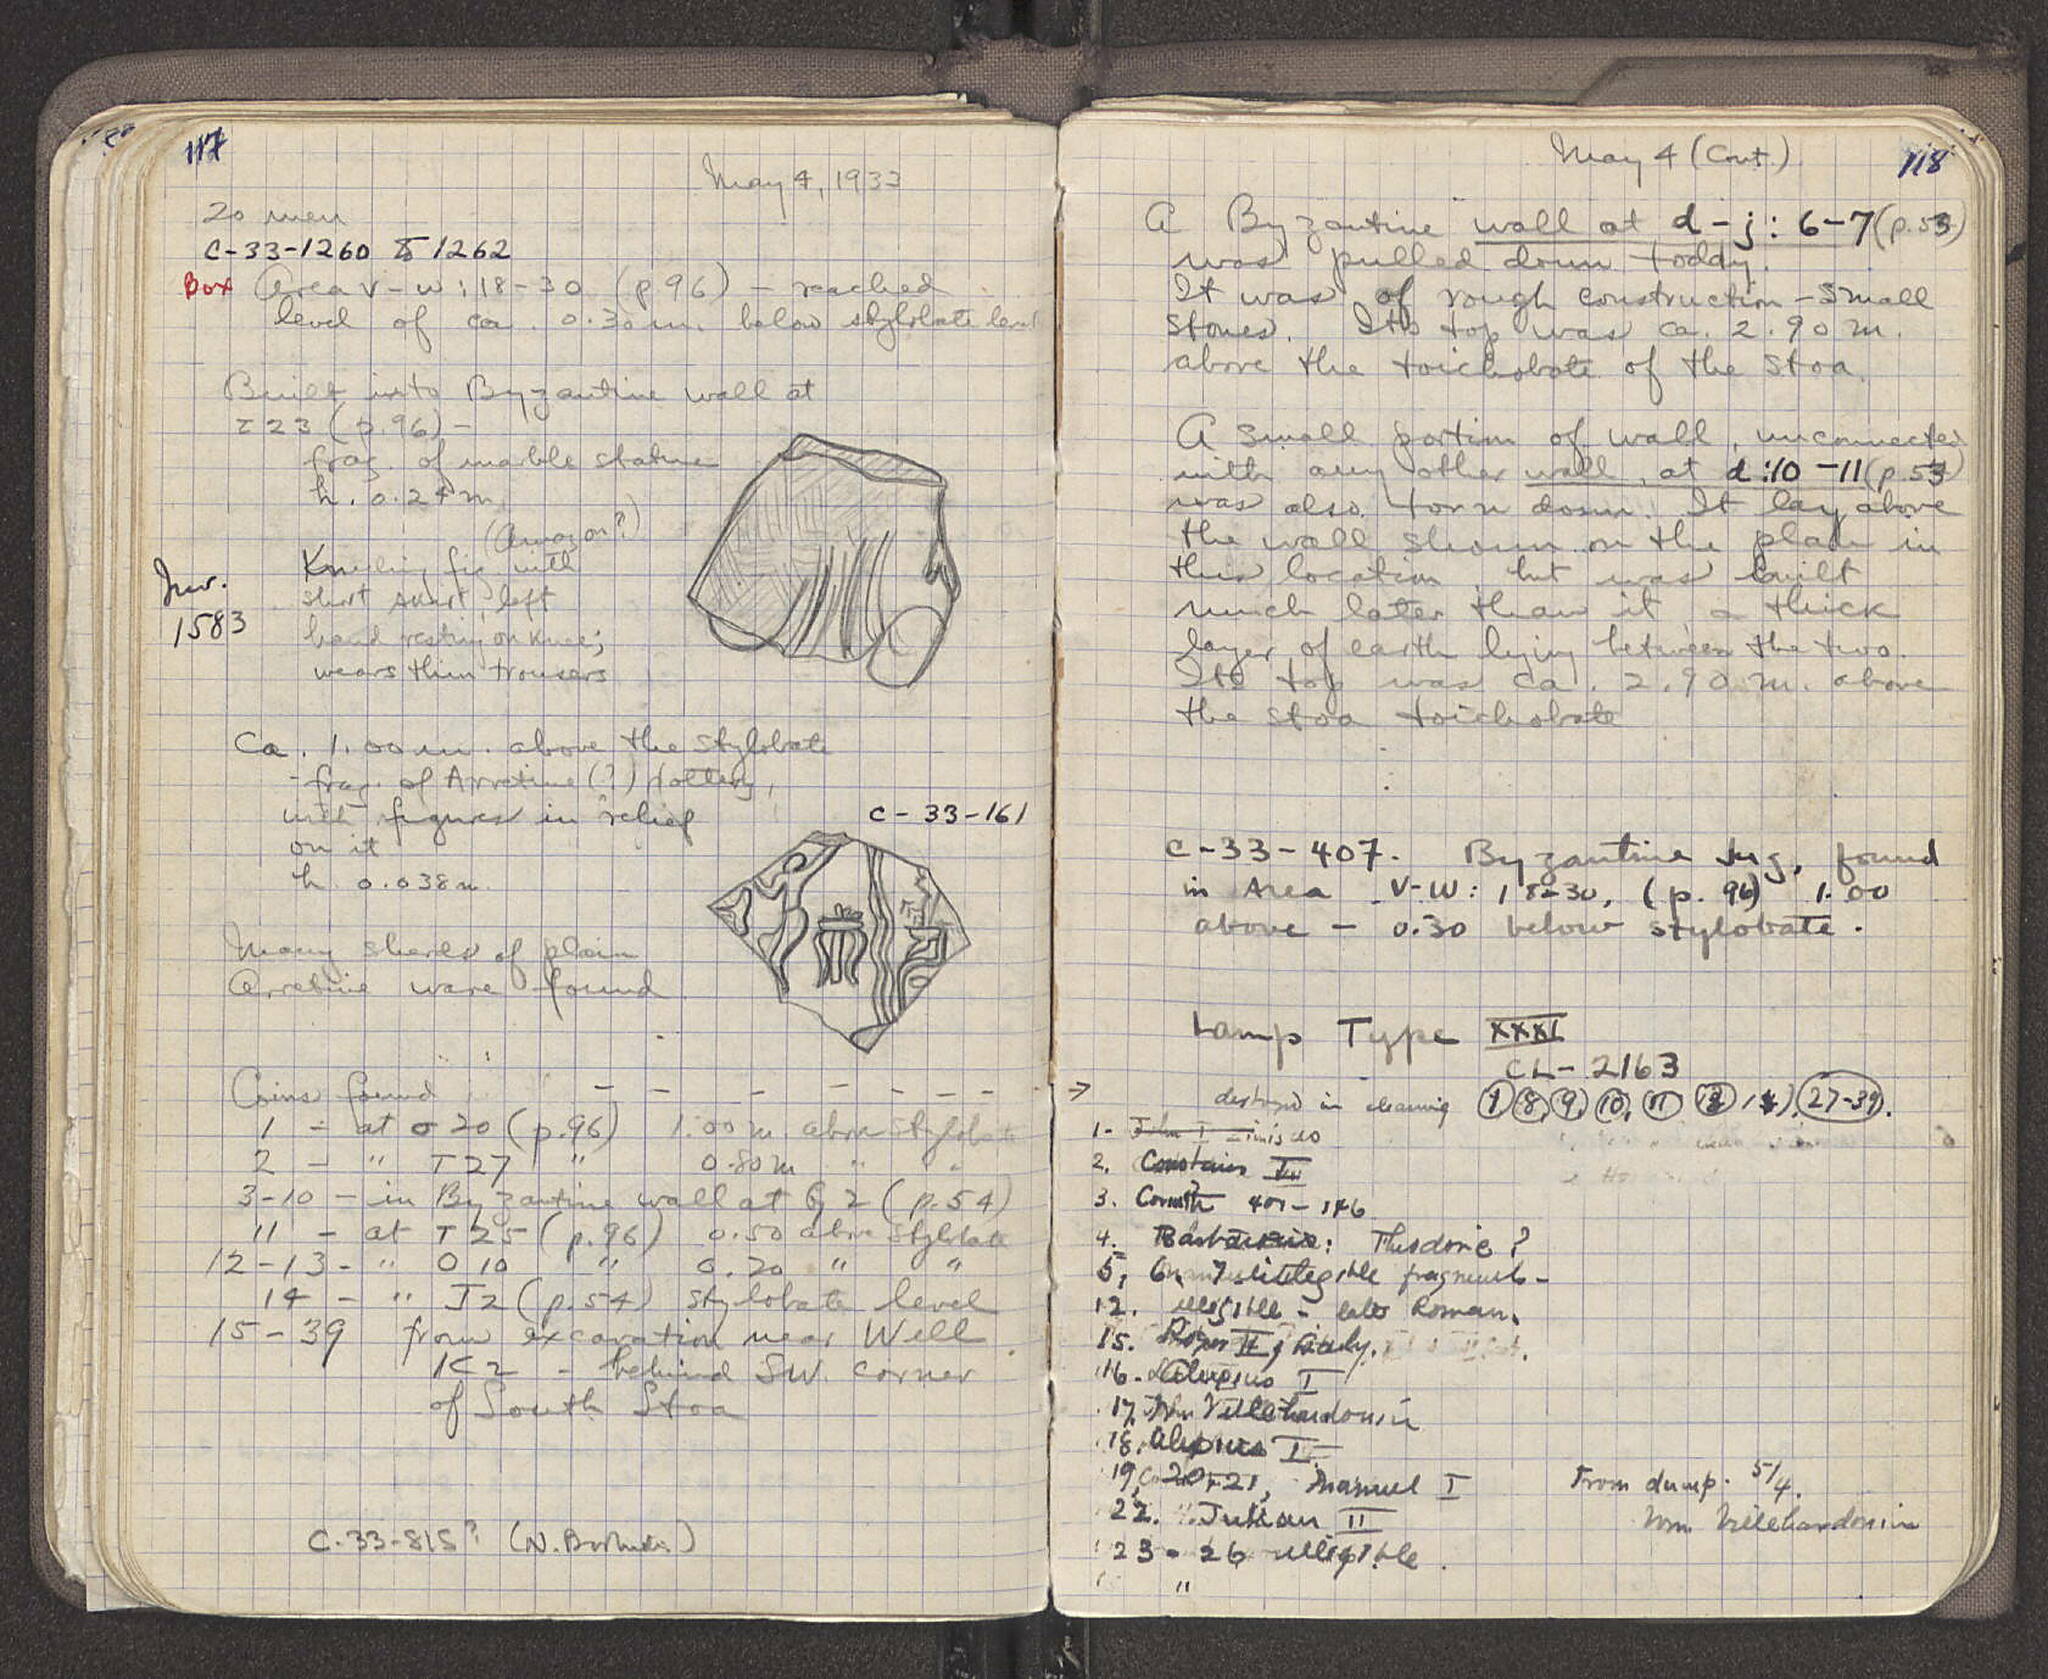 117
May 4, 1933
20 men
C-33-1260 to 1262
Box Area V-W:18-30 (p 96) - reached
level of ca. 0.30 m. below stylobate level
Built into Byzantine wall at
T23 (p.96) -
frag. of marble statue
h. 0.24 m.
(Amazon?)
Kneeling fig. with
short skirt, left
hand resting on knee;
wears thin trousers
Inv.
1583
Ca. 1.00 m. above the stylobate
- frag. of Arretine (?) pottery,
with figures in relief
on it
h. 0.038 m.
C-33-161
Many sherds of plain
Arretine ware found
Coins found
1 - at σ 20 (p.96) 1.00 m above stylobate
2 - " T27 " 0.80 m " "
3-10 - in Byzantine wall at G 2 (p.54)
11 - at T25 (p.96) 0.50 above stylobate
12-13 - " O 10 " 0.20 " "
14 - " J2 (p.54) stylobate level
15-39 from excavation near Well
K2 - behind SW. corner
of South Stoa
C.33-815? (N. )
May 4 (Cont.)
118
A Byzantine wall at d-j: 6-7 (p.53)
was pulled down today.
It was of rough construction - small
stones. Its top was ca. 2.90 m.
above the toichobate of the Stoa.
A small portion of wall, unconnected
with any other wall, at d:10-11 (p.53)
was also torn down. It lay above
the wall shown on the plan in
this location, but was built
much later than it, a thick
layer of earth lying between the two.
Its top was ca. 2.90 m. above
the stoa toichobate
C-33-407. Byzantine Jug, found
in Area V-W: 18-30, (p. 96) 1.00
above - 0.30 below stylobate.
Lamp Type XXXI
CL-2163
destroyed in cleaning 1 8, 9, 10, 11 27-39.
1- John I
2.
3. Corinth 401-146
4. : Theodore?
5, illegible fragments -
12. illegible - late Roman.
15. Roger II, Sicily.
16. Alexius I
17. Wm Villehardouin
18. Alexius I
19, 20, 21, Manuel I
22. " Julian II
23-26 illegible.
"
From dump. 5/4.
Wm. Villehardouin